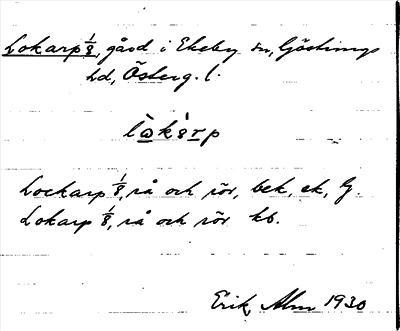 Lokarp 1/8, gård i Ekeby sn, Göstrings
hd, Österg. l.
Lockarp 1/8, rå och rör, bek, ek, G
Lokarp 1/8, rå och rör kb.
Erik Alm 1930